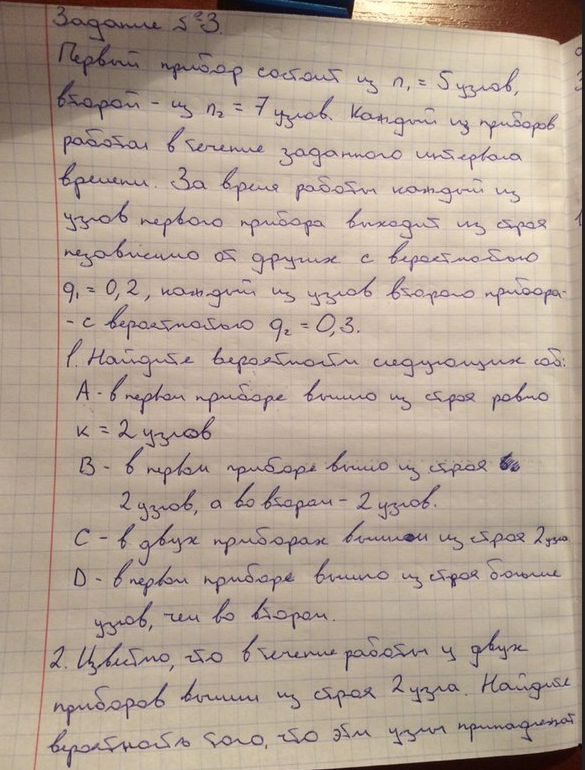 Задание №3.
Первый прибор состоит из n₁ = 5 узлов,
второй – из n₂ = 7 узлов. Каждый из приборов
работал в течение заданного интервала
времени. За время работы каждый из
узлов первого прибора выходит из строя
независимо от других с вероятностью
q₁ = 0,2, каждый из узлов второго прибора-
- с вероятностью q₂ = 0,3.
1. Найдите вероятности следующих соб:
A - в первом приборе вышло из строя ровно
к = 2 узлов
B - в первом приборе вышло из строя
2 узлов, а во втором – 2 узлов.
C - в двух приборах вышли из строя 2 узла
D - в первом приборе вышло из строя больше
узлов, чем во втором.
2. Известно, что в течение работы у двух
приборов вышли из строя 2 узла. Найдите
вероятность того, что эти узлы принадлежат